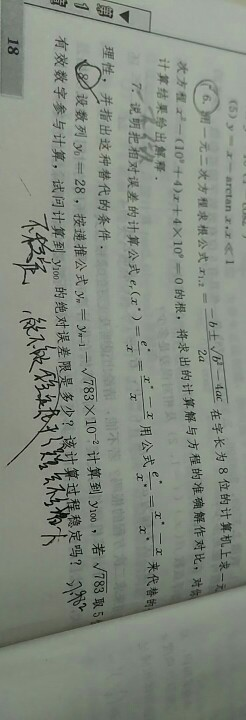 (5) y = x - arctan x, x ≪ 1
6. 用一元二次方程求根公式 x₁,₂ = (-b ± √(b² - 4ac)) / 2a 在字长为 8 位的计算机上求一元
次方程 x² - (10⁹ + 4)x + 4 × 10⁹ = 0 的根, 将求出的计算解与方程的准确解作对比, 对
计算结果给出解释.
7. 说明把相对误差的计算公式 eᵣ(x*) = e*/x = (x* - x)/x 用公式 e*/x* = (x* - x)/x* 来代替的
理性, 并指出这种替代的条件.
8. 设数列 y₀ = 28, 按递推公式 yₙ = yₙ₋₁ - √783 × 10⁻² 计算到 y₁₀₀, 若 √783 取 5
有效数字参与计算, 试问计算到 y₁₀₀ 的绝对误差限是多少? 该计算过程稳定吗?
不稳定
18